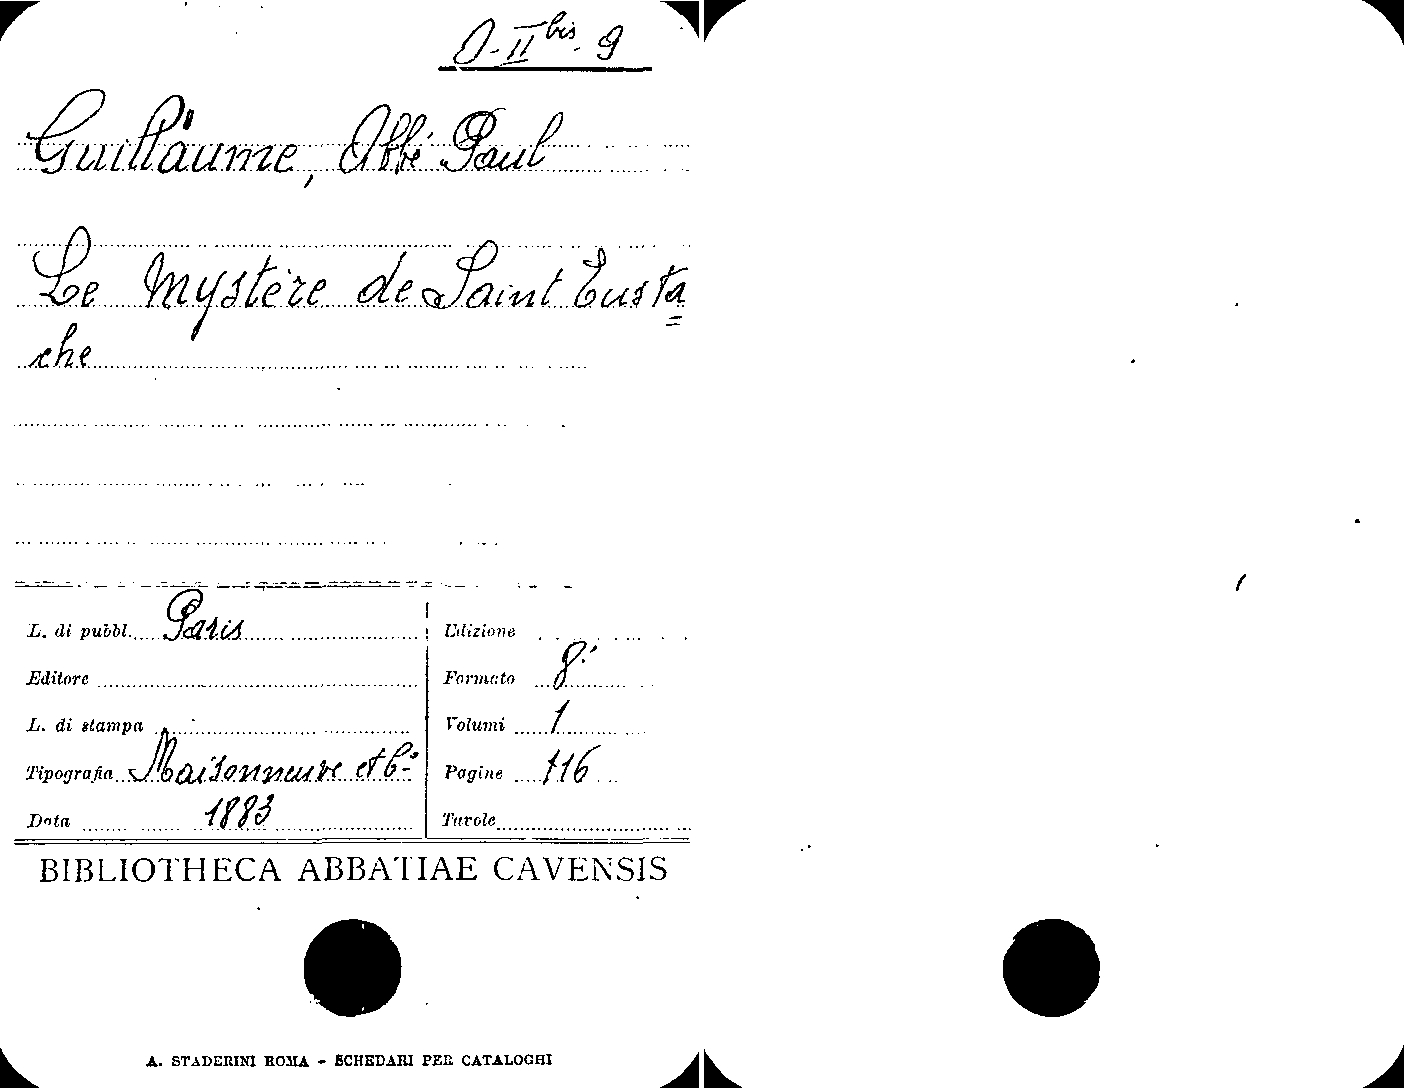 O-II bis-9
Guillaume, Abbé Paul
Le Mystère de Saint Eusta=
che
L. di pubbl. Paris
Edizione
Editore
Formato 8°
L. di stampa
Volumi 1
Tipografia Maisonneuve et C.ie
Pagine 116
Data 1883
Tavole
BIBLIOTHECA ABBATIAE CAVENSIS
A. STADERINI ROMA - SCHEDARI PER CATALOGHI